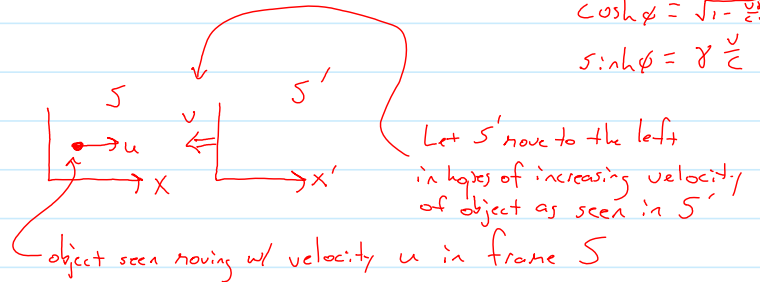 cosh φ = √1 - v²/c²
sinh φ = γ v/c
S
S'
v
u
x
x'
Let S' move to the left
in hopes of increasing velocity
of object as seen in S'
object seen moving w/ velocity u in frame S